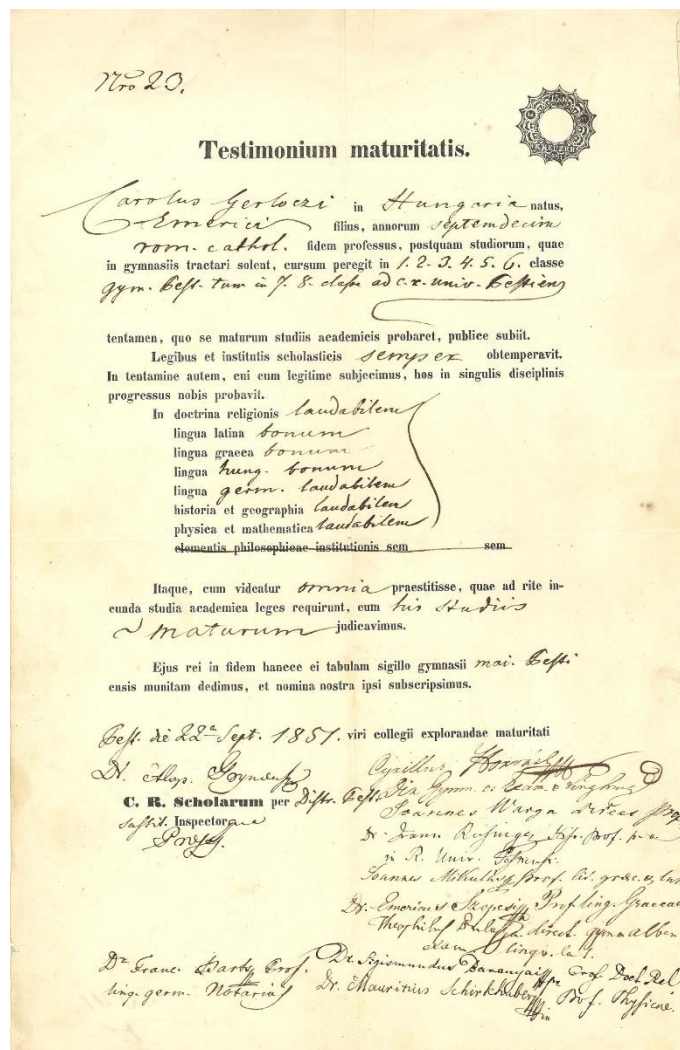 Nro 23.
Testimonium maturitatis.
Carolus Gerloczi in Hungaria natus,
Emerici filius, annorum septemdecim
rom. cathol. fidem professus, postquam studiorum, quae
in gymnasiis tractari solent, cursum peregit in 1. 2. 3. 4. 5. 6. classe
gym. Pest. tum in 7. 8. classe ad c. r. univ. Pestiens
tentamen, quo se maturum studiis academicis probaret, publice subiit.
Legibus et institutis scholasticis semper obtemperavit.
In tentamine autem, cui eum legitime subjecimus, hos in singulis disciplinis
progressus nobis probavit.
In doctrina religionis laudabilem
lingua latina bonum
lingua graeca bonum
lingua hung. bonum
lingua germ. laudabilem
historia et geographia laudabilem
physica et mathematica laudabilem
elementis philosophicae institutionis sem sem
Itaque, cum videatur omnia praestitisse, quae ad rite in-
eunda studia academica leges requirunt, eum his studiis
maturum judicavimus.
Ejus rei in fidem hancce ei tabulam sigillo gymnasii mai. Pesti
ensis munitam dedimus, et nomina nostra ipsi subscripsimus.
Pest. die 22a Sept. 1851. viri collegii explorandae maturitati
Dr. Alop.
Cyrillus Horváth
C. R. Scholarum per Distr. Pest.
Gymn. et Exam.
substit. Inspector
Joannes Warga direct.
Praes.
Dr. Joann Prof.
in R. Univ.
Joannes Prof. lit. graec. & lat
Dr. Emericus Szepesi Prof. ling. Graecae
Theophilus direct. gymn.
exam. lingv. lat.
Dr. Franc. Prof. Dr. Sigismundus Prof. Doct. Rel
ling. germ. Notarius Dr. Mauritius Schirkhuber Prof. Physicae.